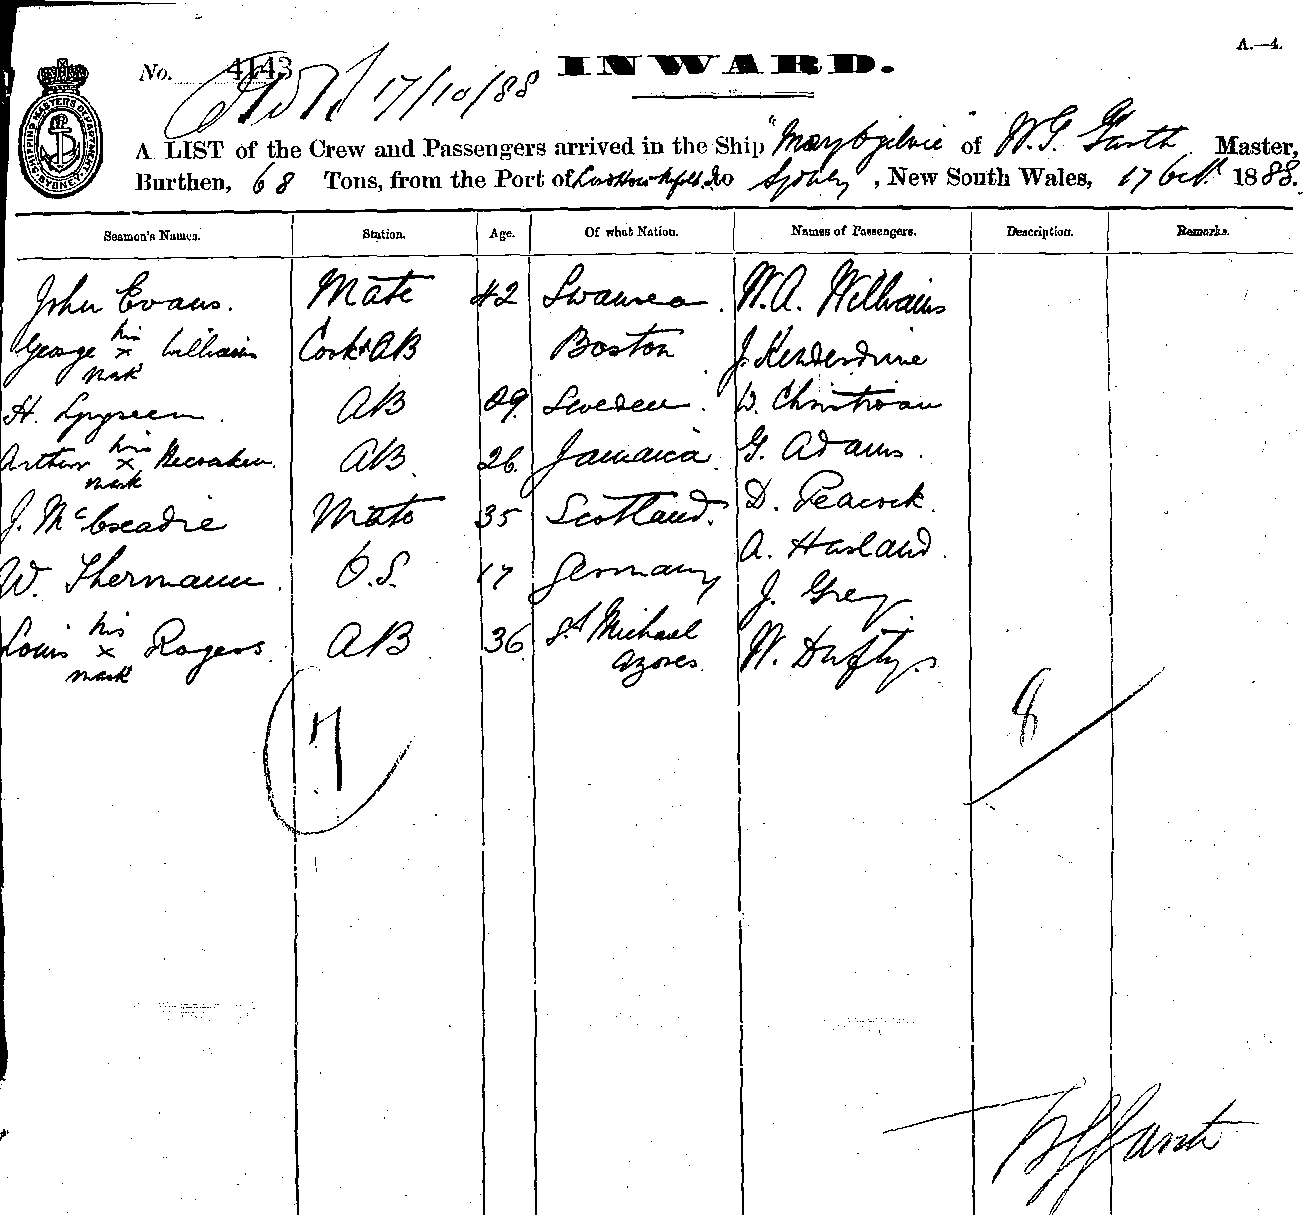 A.—4.
No. 4143 17/10/88 INWARD.
SHIPPING MASTERS DEPARTMENT SYDNEY
A LIST of the Crew and Passengers arrived in the Ship "Mary Ogilvie" of W. G. Garth Master,
Burthen, 68 Tons, from the Port of to Sydney, New South Wales, 17 Octr. 1888.
Seamen's Names. Station. Age. Of what Nation. Names of Passengers. Description. Remarks.
John Evans. Mate 42 Swansea. W. A. Williams
George his x mark William Cook & AB Boston J. Kenderdine
H. AB 29 Sweden. W. Christian
Arthur his x mark AB 26 Jamaica. G. Adams.
J. Mc Mate 35 Scotland. D. Peacock.
W. Thermann. O.S. 17 Germany A. Harland.
J. Grey
Louis his x mark Rogers. AB 36 St Michael Azores. W. Duftys
7 8
W G Garth